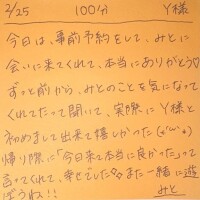 2/25 100分 Y様
今日は、事前予約をして、みとに
会いに来てくれて、本当にありがとう♡
ずっと前から、みとのことを気になって
くれてたって聞いて、実際にY様と
初めまして出来て嬉しかった(*'ω'*)
帰り際に「今日来て本当に良かった」って
言ってくれて、幸せでした♡。また一緒に遊
ぼうね!! みと